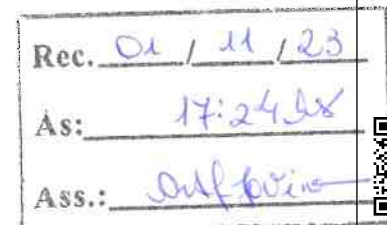 Rec. 01 / 11 / 23
Às: 17:24 hs
Ass.: